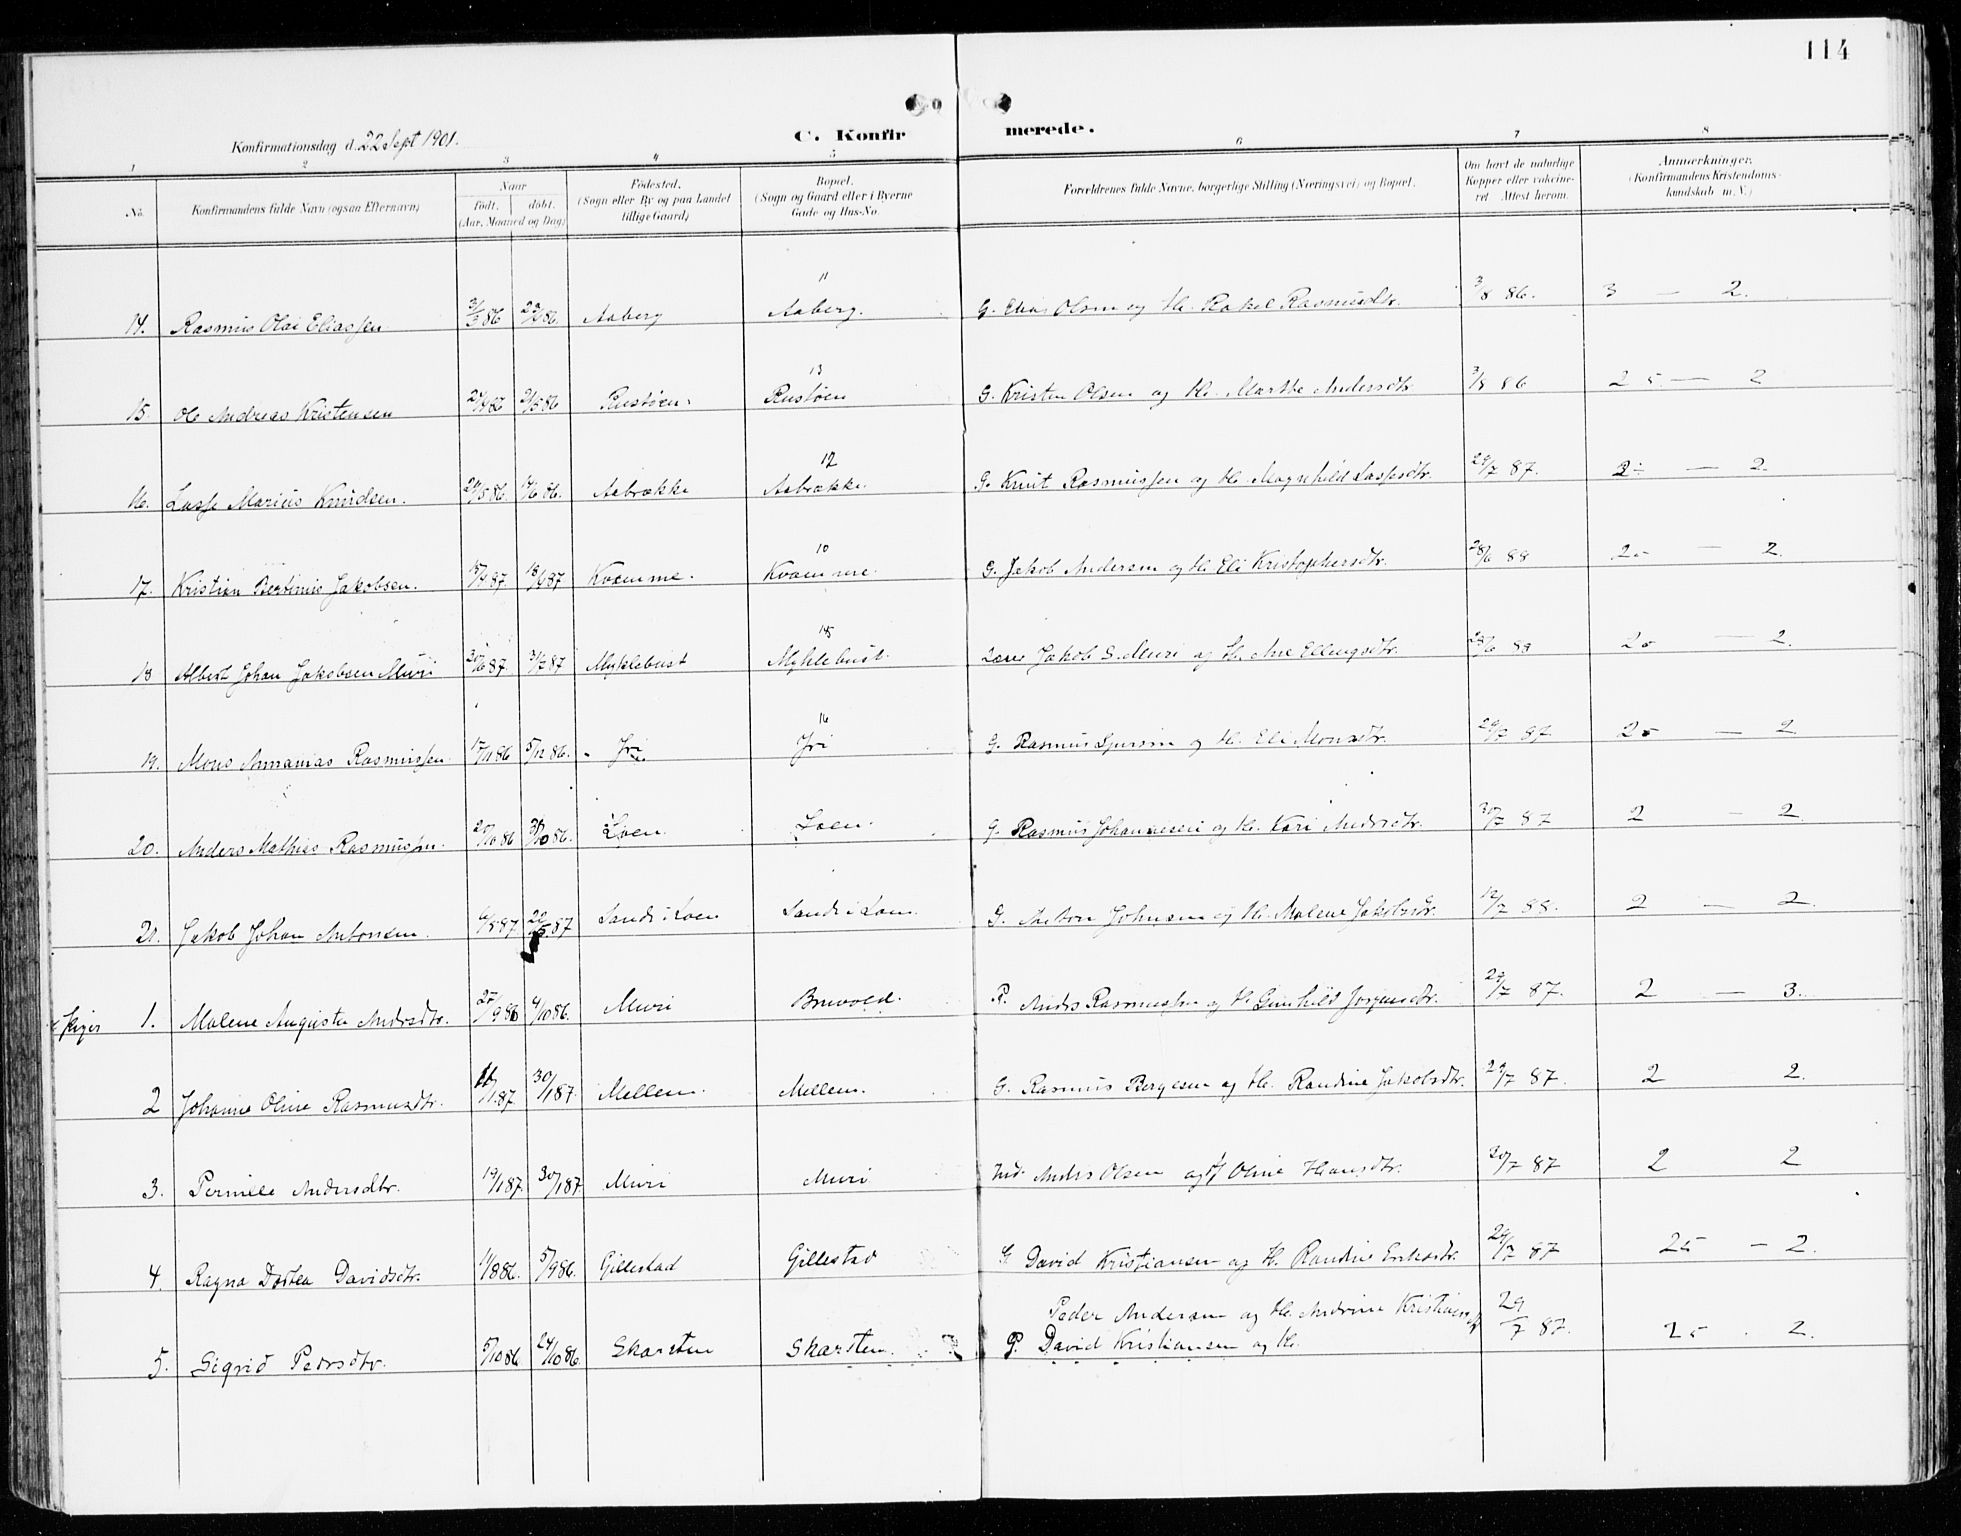 114
C. Konfirmerede.
Konfirmationsdag d. 22 Sept 1901.
1 2 3 4 5 6 7 8
No. Konfirmandens fulde Navn (ogsaa Efternavn) Naar født. døbt. (Aar, Maaned og Dag) Fødested. (Sogn eller By og paa Landet tillige Gaard) Bopæl. (Sogn og Gaard eller i Byerne Gade og Hus-No. Forældrenes fulde Navne, borgerlige Stilling (Næringsvei) og Bopæl. Om havt de naturlige Kopper eller vakcineret. Attest herom. Anmærkninger. (Konfirmandens Kristendomskundskab m. V.)
11
14. Rasmus Olai Eliassen 86 86. Aaberg Aaberg. G. Elias Olsen og H. Rakel Rasmusdtr. 3/8 86. 3 — 2.
13
15. Ole Andreas Kristensen 86 9/5 86 Rustøen Rustøen G. Kristen Olsen og H. Marthe Andersdtr 3/8 86 2 — 2
12
16. Lasse Marius Knudsen. 86. 86. Aabrække Aabrække. G. Knut Rasmussen og H. Magnhild Lassesdtr. 29/7 87. 2 — 2.
10
17. Kristian Bertinus Jakobsen. 87. 87 Kvamme. Kvamme. G. Jakob Andersen og H. Eli Kristophersdtr. 28/6 88 2 — 2.
18 Albert Johan Jakobsen Muri 87. 3/7 87 Myklebust Myklebust. Jakob S. Muri og H. Ane Ellingsdtr. 28/6 88 2 — 2.
16
19. Mons Annanias Rasmussen. /11 86 5/12 86. Jri Jri G. Rasmus og H. Eli Monsdtr. 29/7 87 2 — 2
20. Anders Mathias Rasmussen. /10 86 31/10 86. Loen. Loen. G. Rasmus Johannesen og H. Kari Andrsdtr. 87 2 — 2.
21. Jakob Johan Antonsen. 87 87 Sande i Loen Sande i Loen. G. Anton Johnsen og H. Malene Jakobsdtr. 12/7 88. 2 — 2.
Piger 1. Malene Augusta Andrsdtr. 27/9 86 4/10 86. Muri Bruvold. P. Andrs Rasmussen og H. Gunhild Jørgensdtr. 29/7 87. 2 — 3.
2 Johanne Oline Rasmusdtr. /1 87 30/1 87. Mellem. Mellem. G. Rasmus Bergesen og H. Randine Jakobsdtr. 29/7 87. 2 2.
3. Pernille Andersdtr. 19/1 87. 30/1 87 Muri Muri Ind. Andrs Olsen og Oline Hansdtr. 87 2 2
4. Ragna Dortea Davidsdtr. 11/8 86. 5/9 86. Gillestad Gillestad G. David Kristiansen og H. Randine Eriksdtr. 29/7 87 2 — 2.
Peder Andersen og H. Andrine Kristiansd
5. Sigrid Pedrsdtr. 5/10 86 24/10 86. Skarsten Skarsten. P. David Kristiansen og H. 29/7 87. 2 . 2.